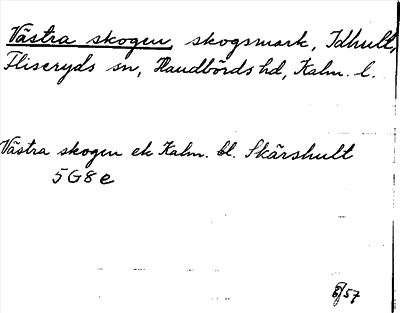 Västra skogen, skogsmark, Idhult,
Fliseryds sn, Handbörds hd, Kalm. l.
Västra skogen ek Kalm. bl. Skärshult
5G8e
/57